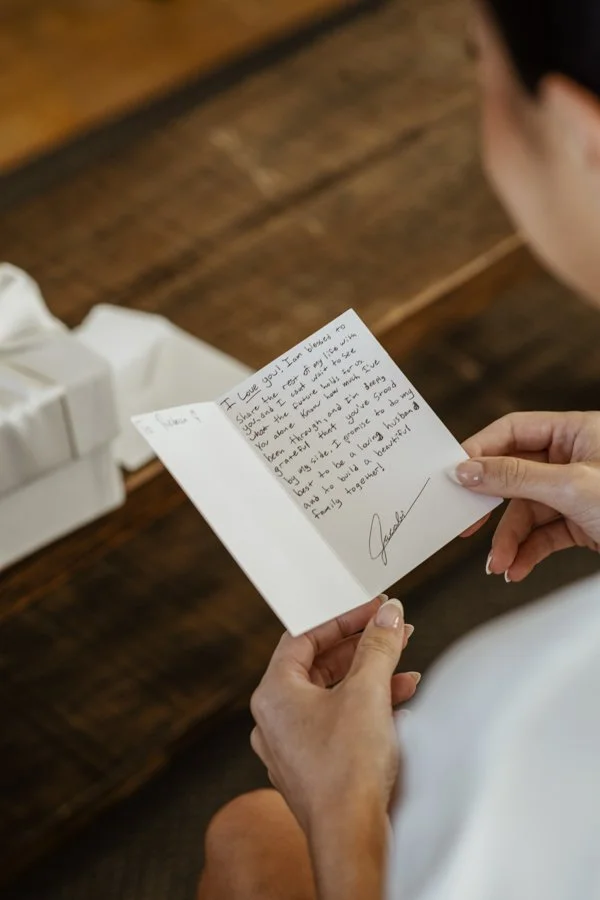 I Love you! I am blessed to
share the rest of my life with
you, and I cant wait to see
what the future holds for us.
You alone know how much I've
been through, and I'm deeply
grateful that you've stood
by my side. I promise to do my
best to be a loving husband
and to build a beautiful
family together!